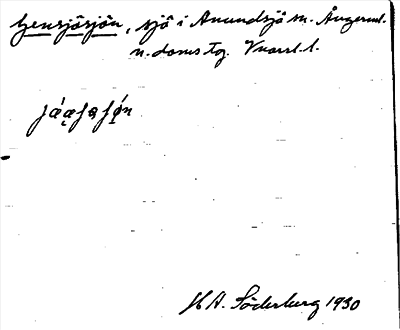 Gensjösjön, sjö i Anundsjö sn. Ångerml.
n. doms tg. Vnorrl. l.
H A. Söderberg 1930